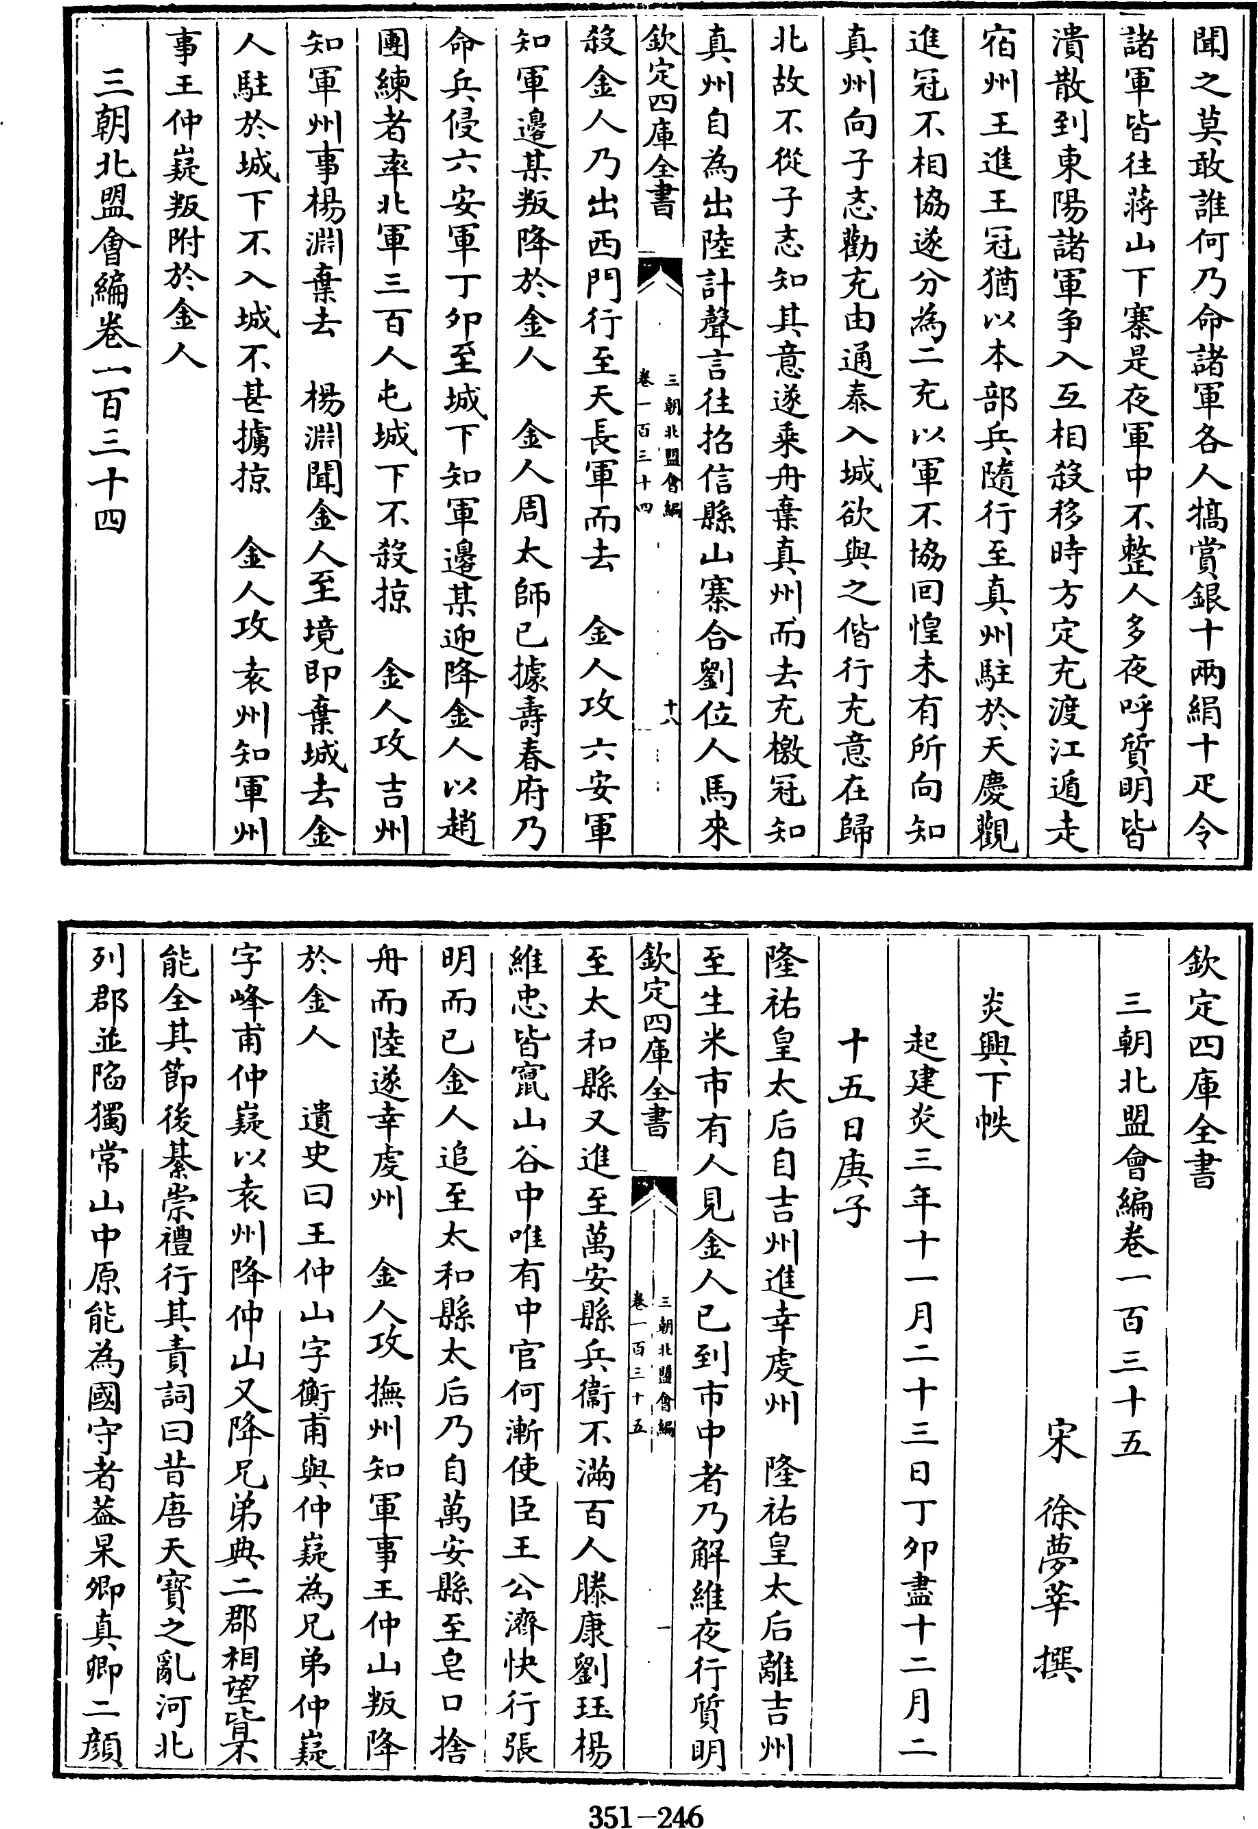 聞之莫敢誰何乃命諸軍各人犒賞銀十兩絹十疋令
諸軍皆往蔣山下寨是夜軍中不整人多夜呼質明皆
潰散到東陽諸軍爭入互相殺移時方定充渡江遁走
宿州王進王冠猶以本部兵隨行至真州駐於天慶觀
進冠不相協遂分為二充以軍不協回惶未有所向知
真州向子忞勸充由通泰入城欲與之偕行充意在歸
北故不從子忞知其意遂乘舟棄真州而去充檄冠知
真州自為出陸計聲言往招信縣山寨合劉位人馬來
欽定四庫全書
三朝北盟會編
卷一百三十四
十八
殺金人乃出西門行至天長軍而去　金人攻六安軍
知軍邊某叛降於金人　金人周太師已據壽春府乃
命兵侵六安軍丁卯至城下知軍邊某迎降金人以趙
團練者率北軍三百人屯城下不殺掠　金人攻吉州
知軍州事楊淵棄去　楊淵聞金人至境即棄城去金
人駐於城下不入城不甚擄掠　金人攻袁州知軍州
事王仲嶷叛附於金人
三朝北盟會編卷一百三十四
欽定四庫全書
三朝北盟會編卷一百三十五
宋　徐夢莘　撰
炎興下帙
起建炎三年十一月二十三日丁卯盡十二月二
十五日庚子
隆祐皇太后自吉州進幸虔州　隆祐皇太后離吉州
至生米市有人見金人已到市中者乃解維夜行質明
欽定四庫全書
三朝北盟會編
卷一百三十五
一
至太和縣又進至萬安縣兵衞不滿百人滕康劉珏楊
維忠皆竄山谷中唯有中官何漸使臣王公濟快行張
明而已金人追至太和縣太后乃自萬安縣至皂口捨
舟而陸遂幸虔州　金人攻撫州知軍事王仲山叛降
於金人　遺史曰王仲山字衡甫與仲嶷為兄弟仲嶷
字峰甫仲嶷以袁州降仲山又降兄弟典二郡相望皆不
能全其節後綦崇禮行其責詞曰昔唐天寶之亂河北
列郡並陷獨常山中原能為國守者葢杲卿真卿二顏
351-246